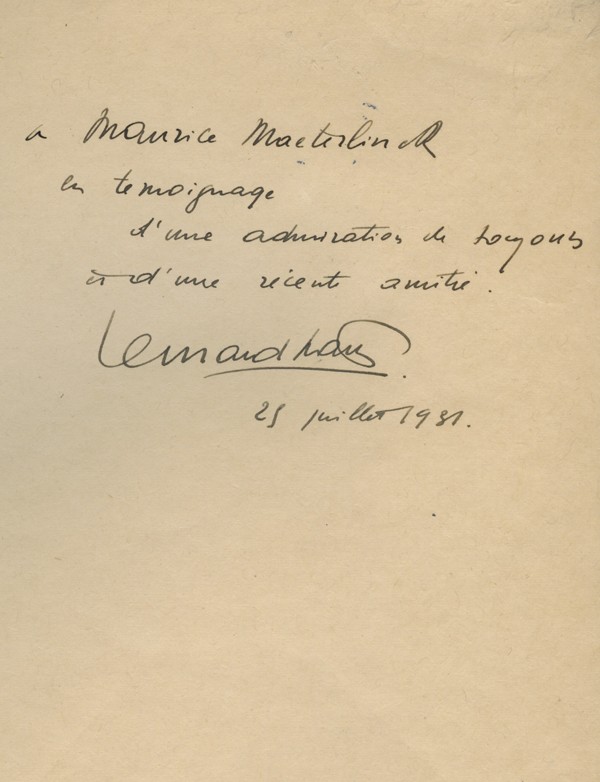 a Maurice Maeterlinck
en temoignage
d'une admiration de toujours
et d'une récente amitié.
25 juillet 1931.